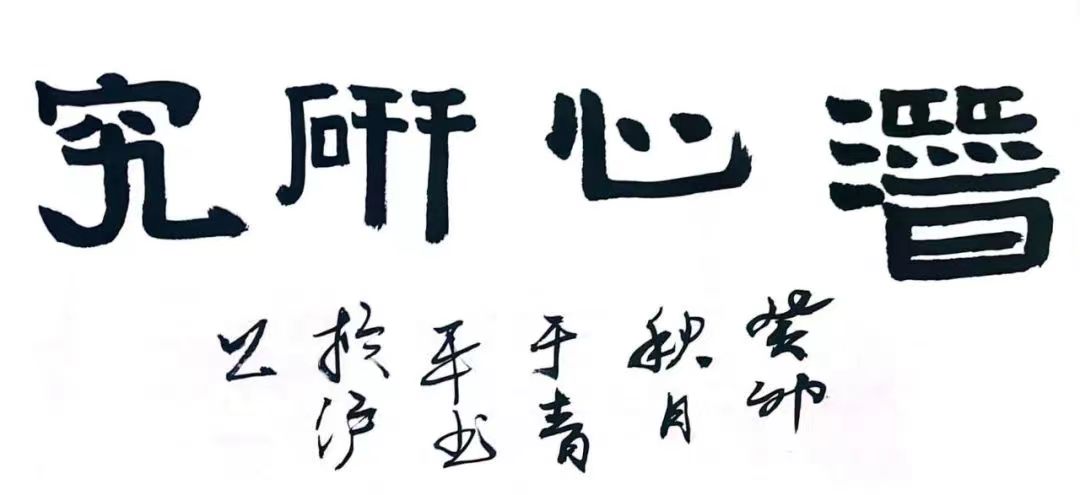 潛心研究
癸卯
秋月
于青
平书
於沪
上